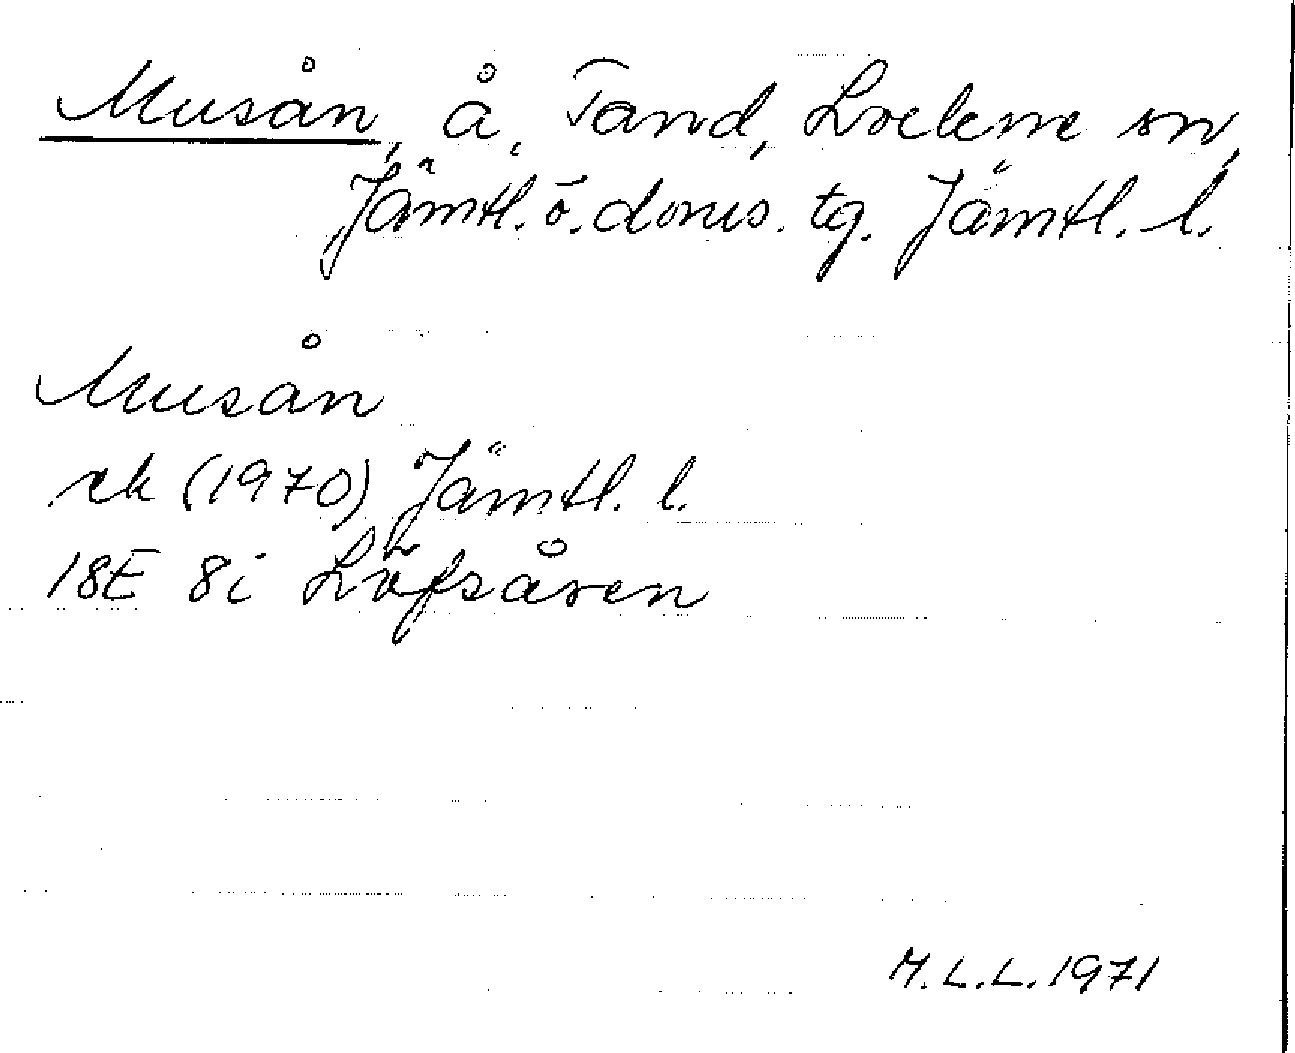 Musån, å, Tand, Lockne sn,
Jämtl. ö. doms. tg. Jämtl. l.
Musån
rek (1970) Jämtl. l.
18E 8i Löfsåren
M.L.L. 1971